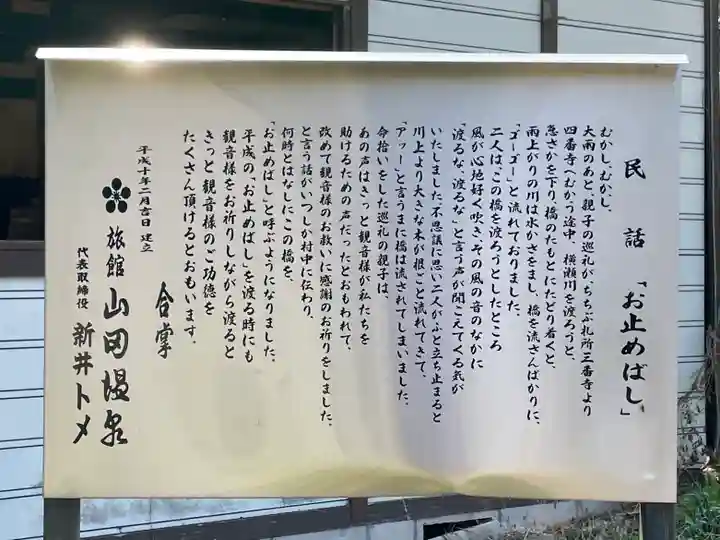 民話 「お止めばし」
むかし、むかし、
大雨のあと、親子の巡礼がちちぶ札所三番寺より
四番寺へむかう途中 横瀬川を渡ろうと、
急さかを下り、橋のたもとにたどり着くと、
雨上がりの川は水かさをまし、橋を流さんばかりに、
「ゴーゴー」と流れておりました、
二人は、この橋を渡ろうとしたところ
風が心地好く吹き、その風の音のなかに
「渡るな、渡るな」と言う声が聞こえてくる気が
いたしました、不思議に思い二人がふと立ち止まると
川上より大きな木が根こと流れてきて、
「アッー」と言うまに橋は流されてしまいました、
命拾いをした巡礼の親子は、
あの声はきっと観音様が私たちを
助けるための声だったとおもわれて、
改めて観音様のお救いに感謝のお祈りをしました、
と言う話がいつしか村中に伝わり、
何時とはなしにこの橋を、
「お止めばし」と呼ぶようになりました、
平成の、「お止めばし」を渡る時にも
観音様をお祈りしながら渡ると
きっと観音様のご功徳を
たくさん頂けるとおもいます、
合掌
平成十年二月吉日 建立
旅館 山田温泉
代表取締役 新井トメ